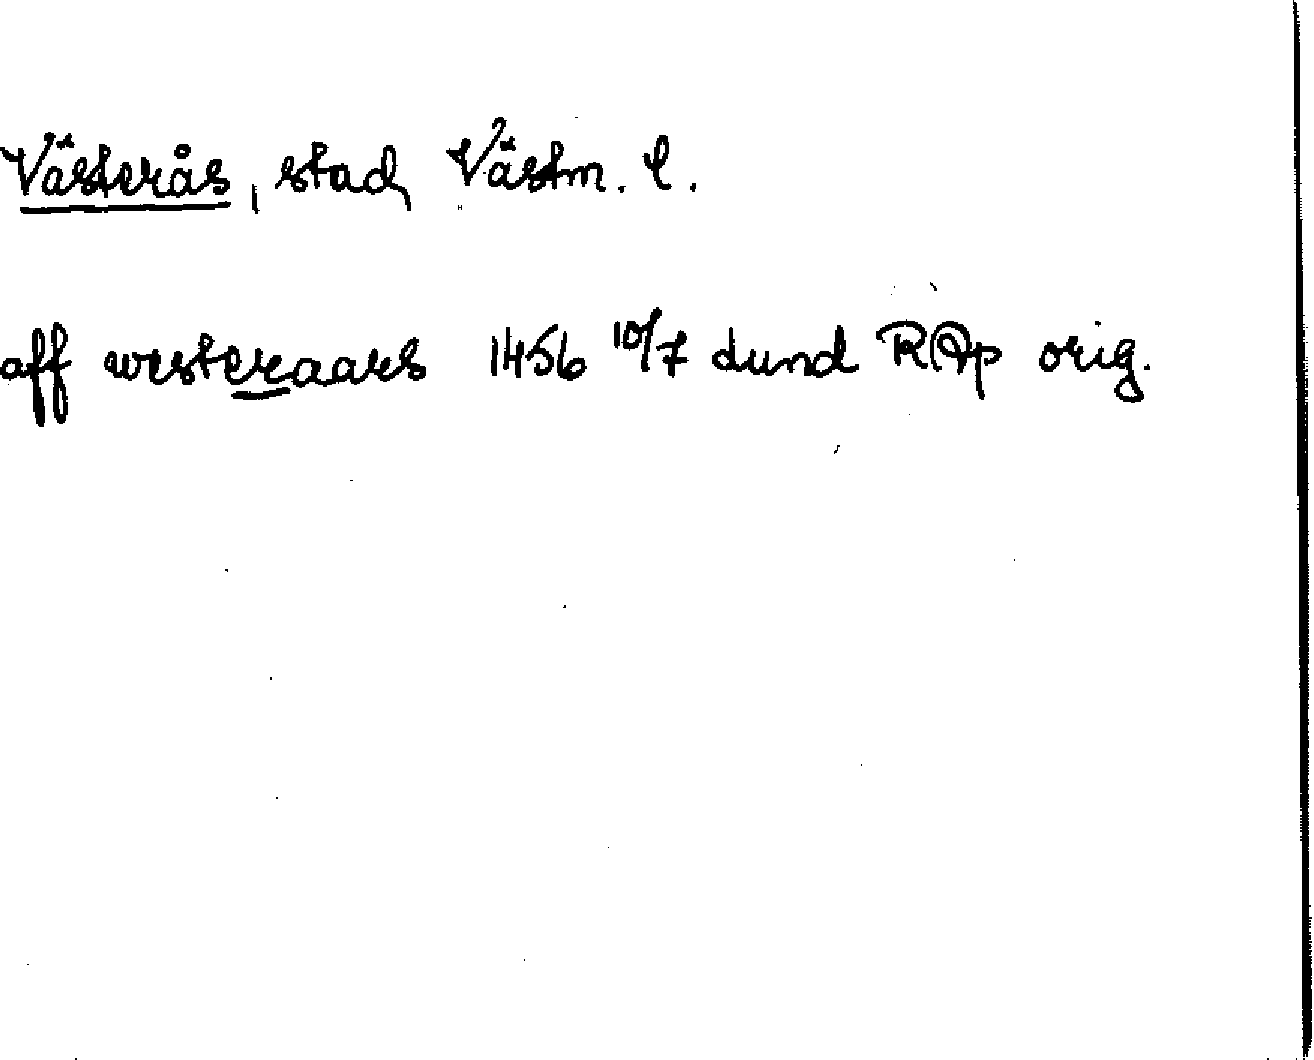 Västerås, stad, Västm. l.
aff westeraars 1456 10/7 Lund RAp orig.